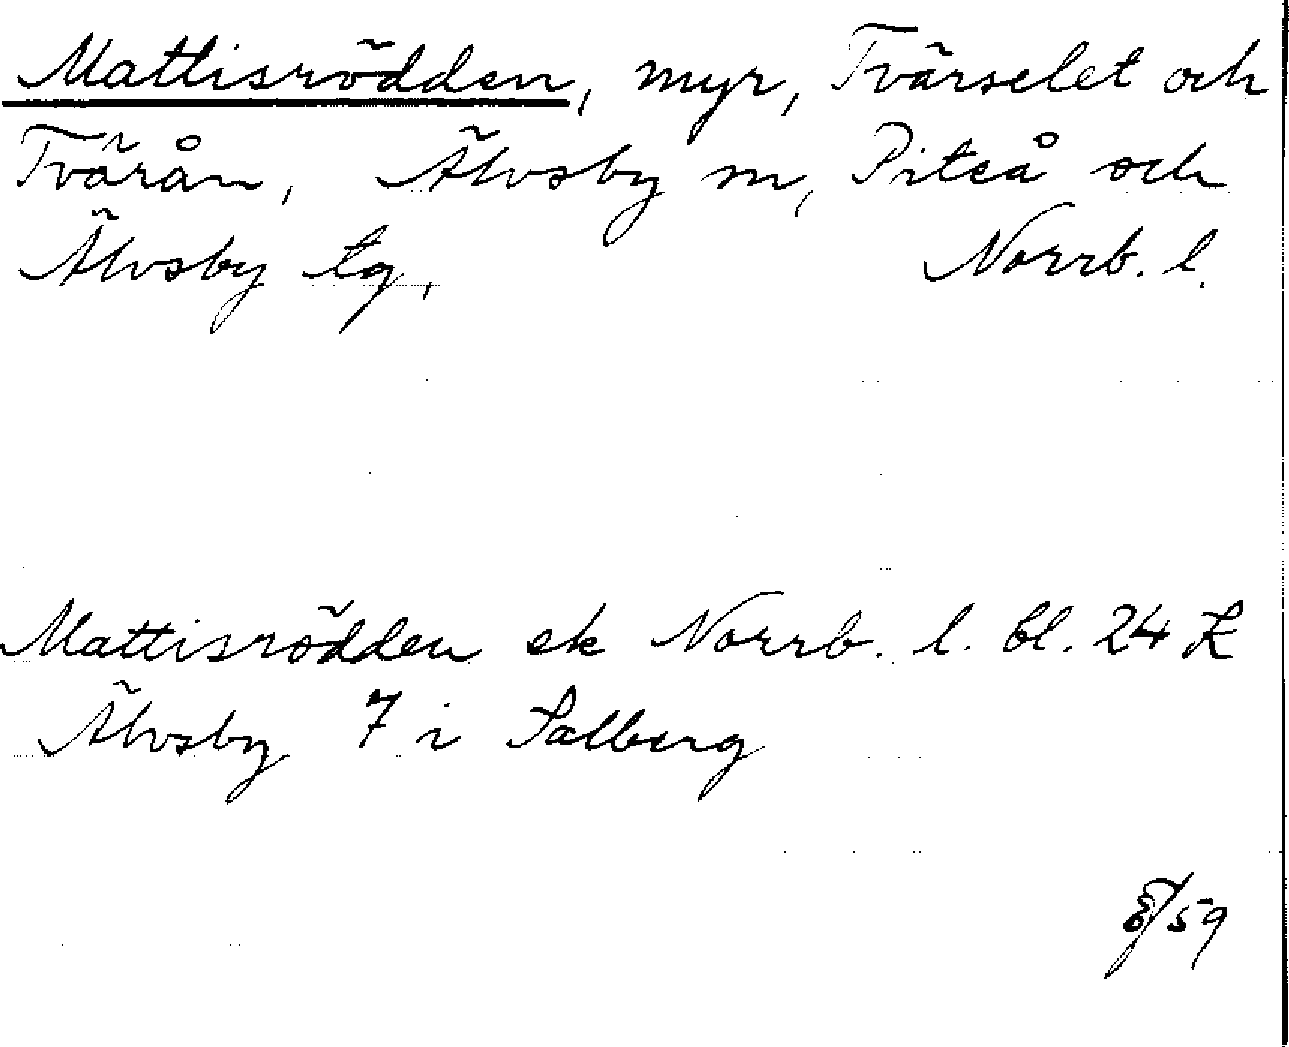 Mattisrödden, myr, Tvärselet och
Tvärån, Älvsby sn, Piteå och
Älvsby tg, Norrb. l.
Mattisrödden ek Norrb. l. bl. 24 K
Älvsby 7 i Salberg
59